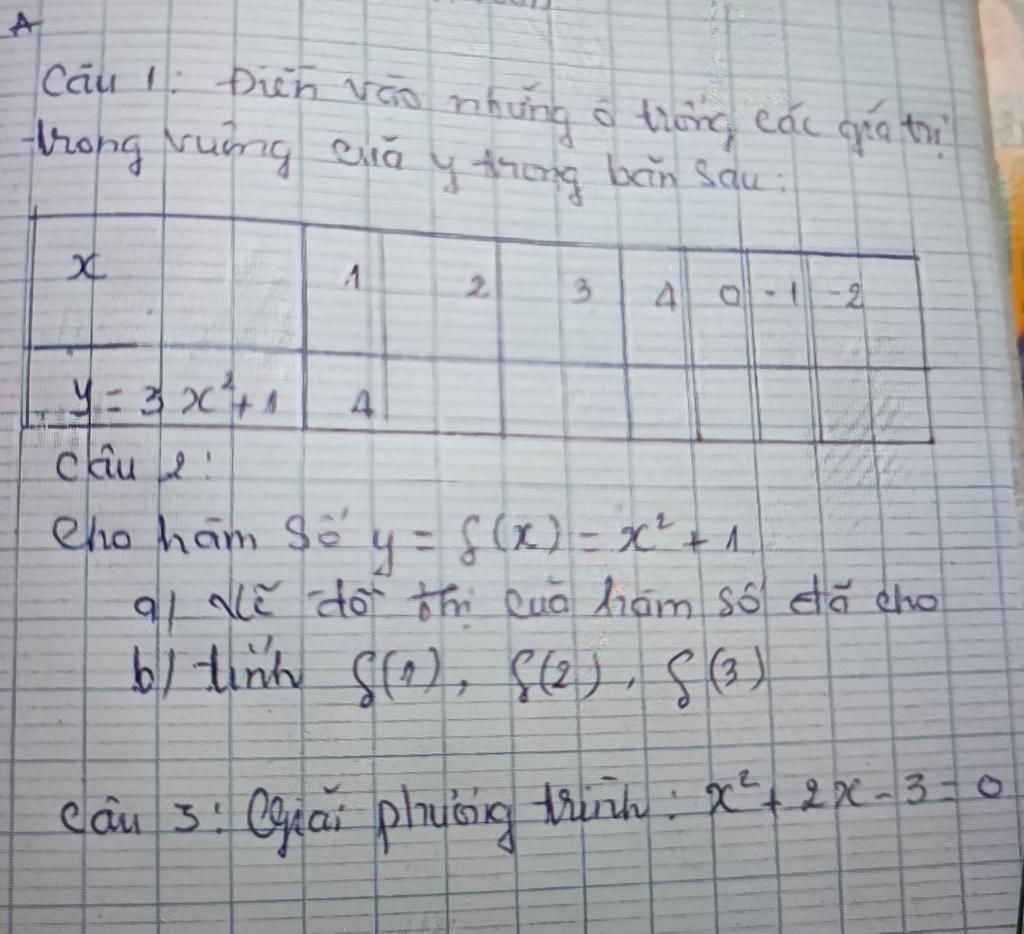 A
Câu 1: Điền vào những ô trống các giá trị
trong vuông của y trong bản sau:
x 1 2 3 4 0 -1 -2
y = 3x² + 1 4
Câu 2:
Cho hàm số y = f(x) = x² + 1
a) Vẽ đồ thị của hàm số đã cho
b) tính f(1), f(2), f(3)
Câu 3: Giải phương trình: x² + 2x - 3 = 0